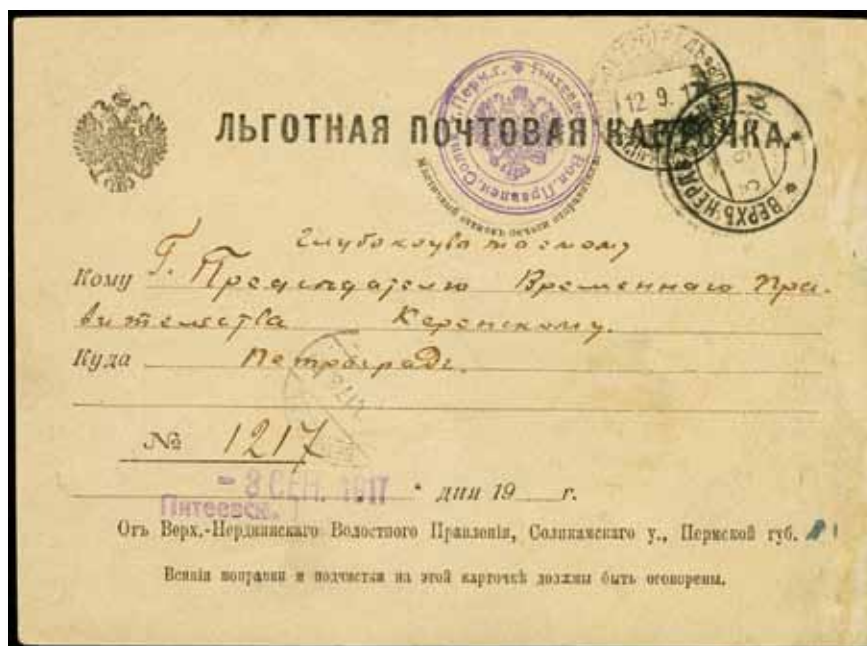 ЛЬГОТНАЯ ПОЧТОВАЯ КАРТОЧКА.
12.9.17
ВЕРХЪ-НЕРД
Глубокоуважаемому
Кому Г. Предсѣдателю Временнаго Пра-
вительства Керенскому.
Куда Петроградъ.
№ 1217
- 3 СЕН. 1917
дня 19 г.
Питеевск.
Отъ Верх.-Нердвинскаго Волостного Правленія, Соликамскаго у., Пермской губ.
Всякія поправки и подчистки на этой карточкѣ должны быть оговорены.